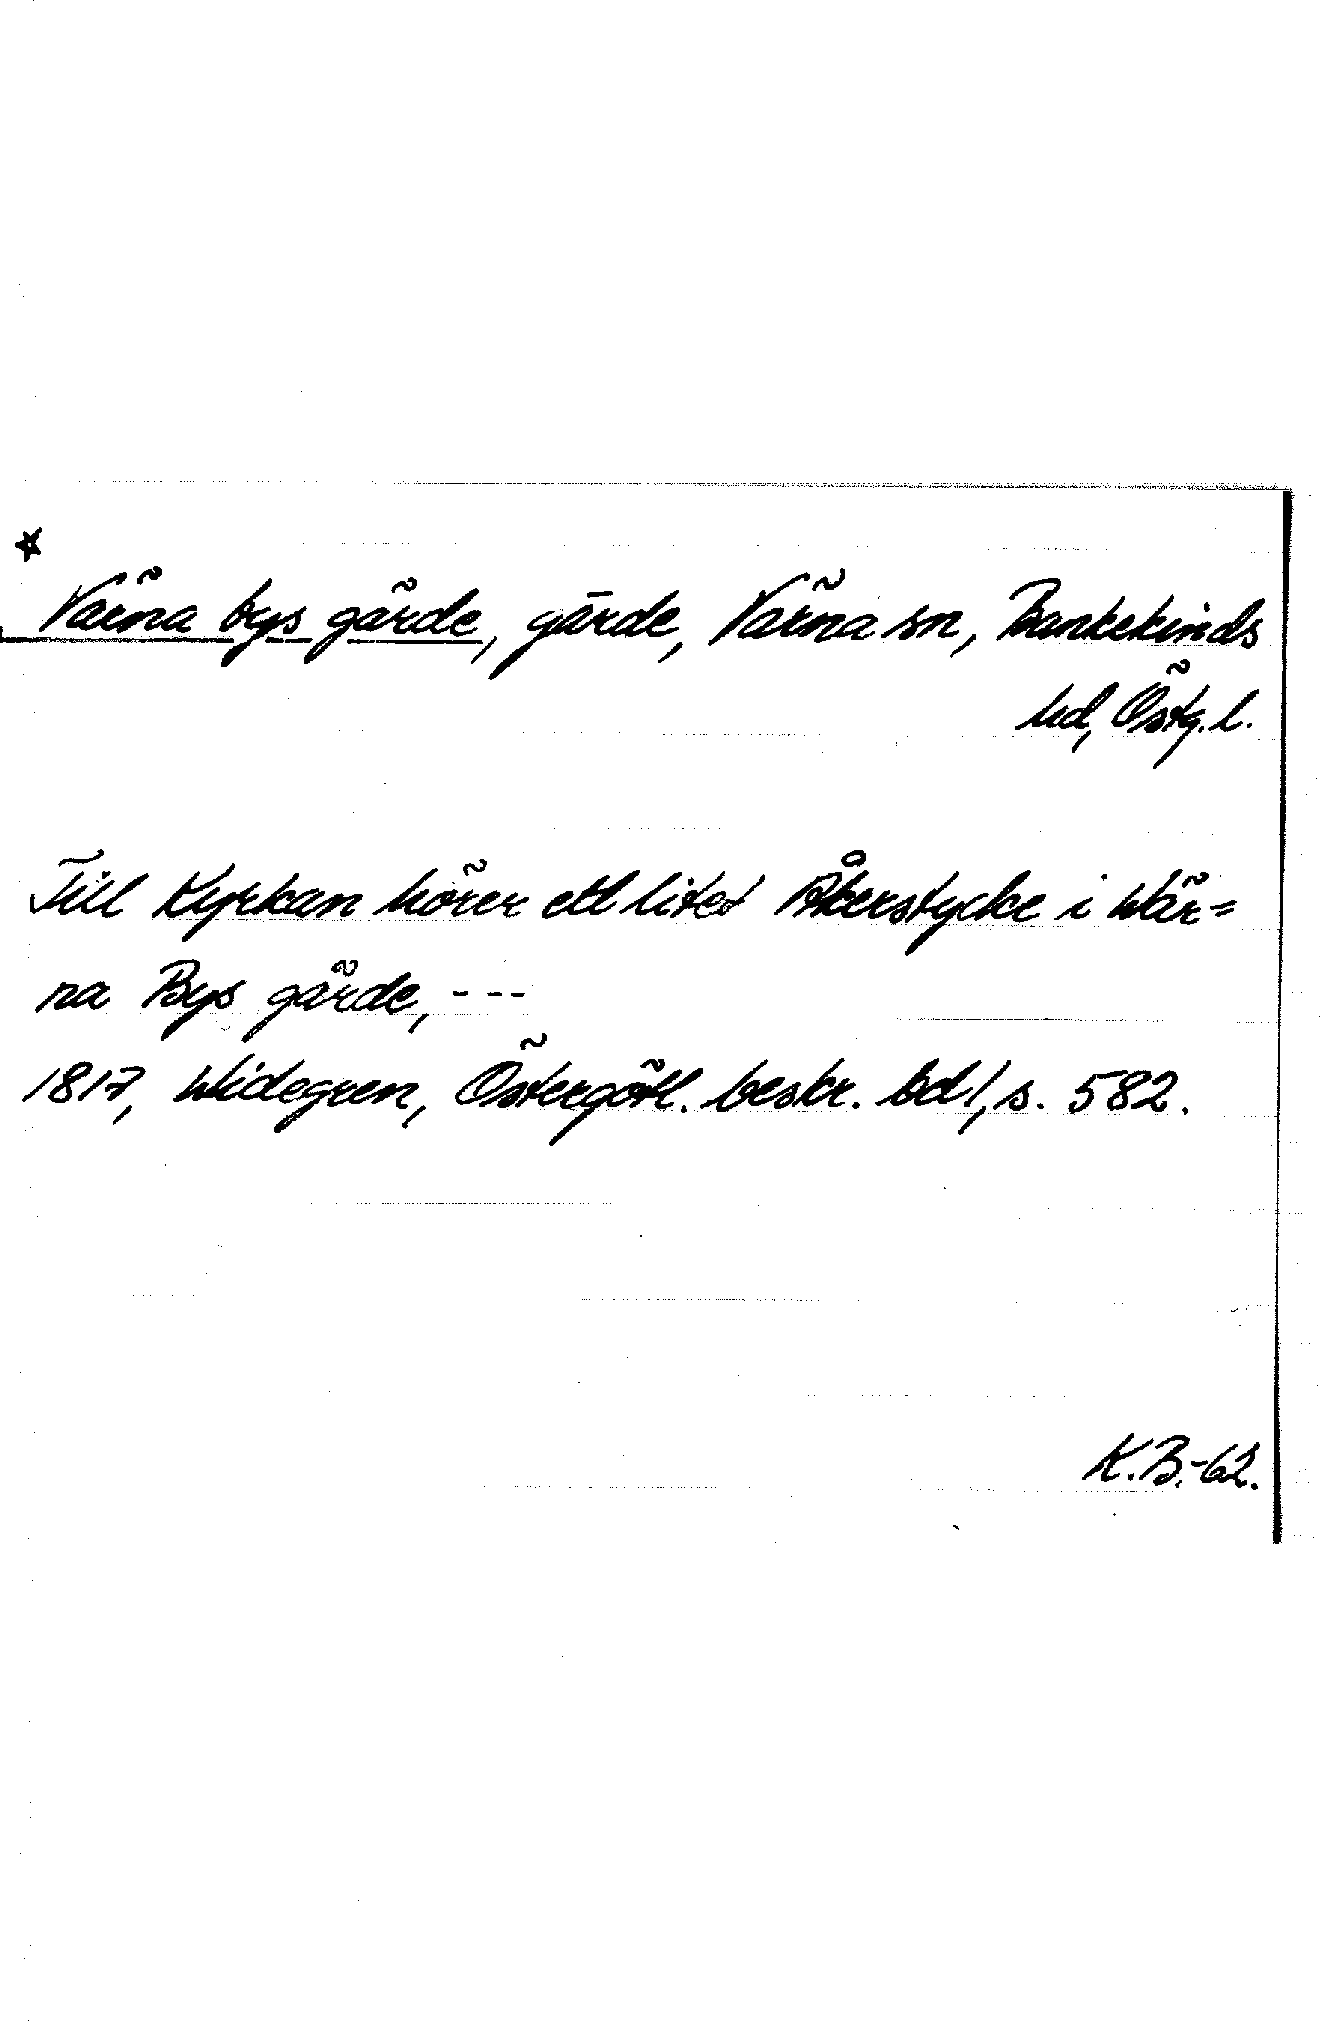 ☆
Värna bys gärde, gärde, Värna sn, Bankekinds
hd, Östg. l.
Till Kyrkan hörer ett litet Åkerstycke i Wär=
na Bys gärde, ---
1817, Widegren, Östergötl. beskr. bd 1, s. 582.
K.B.-62.